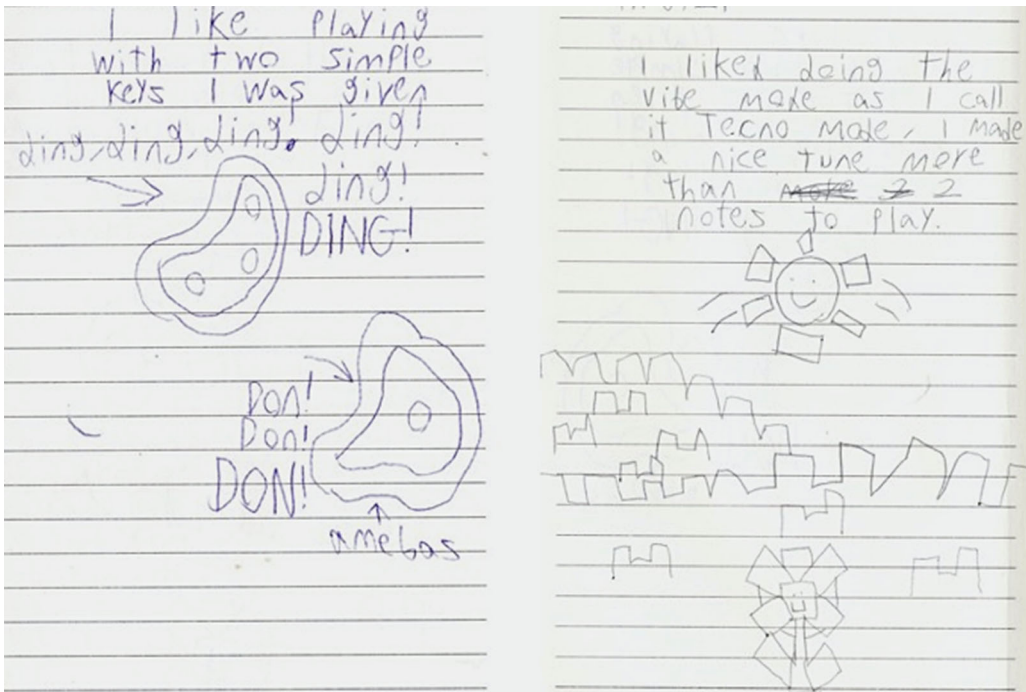 I like playing
with two simple
keys I was given
ding, ding, ding, ding!
ding!
DING!
Don!
Don!
DON!
amebas
I liked doing the
vibe mode as I call
it Tecno mode, I made
a nice tune more
than 2
notes to play.